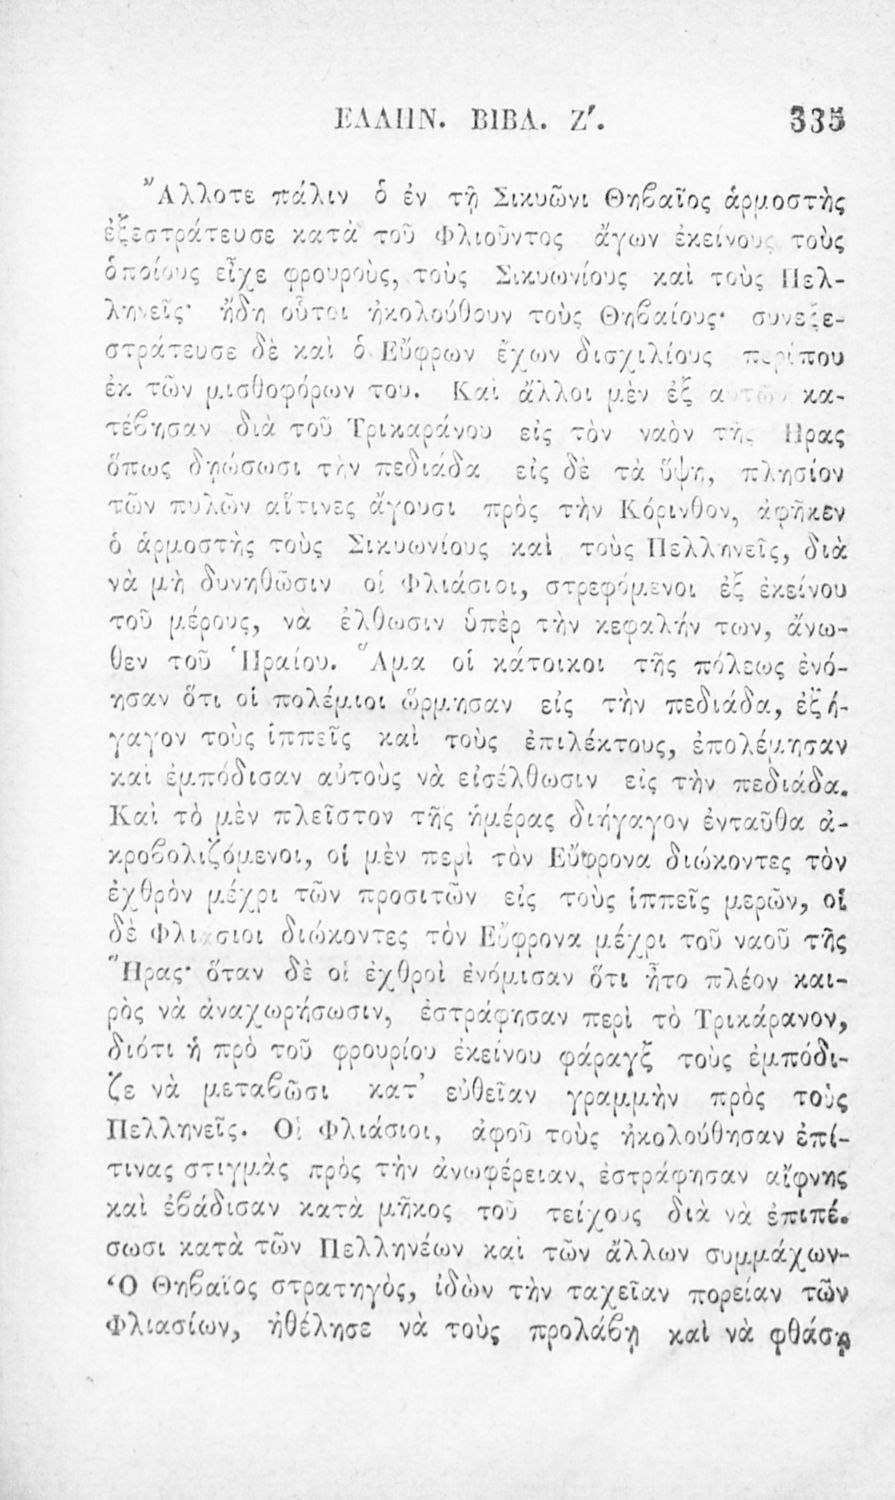 ΕΛΛΗΝ. ΒΙΒΛ. Ζʹ. 335
Ἄλλοτε πάλιν ὁ ἐν τῇ Σικυῶνι Θηβαῖος ἁρμοστὴς
ἐξεστράτευσε κατὰ τοῦ Φλιοῦντος ἄγων ἐκείνους τοὺς
ὁποίους εἶχε φρουροὺς, τοὺς Σικυωνίους καὶ τοὺς Πελ-
ληνεῖς· ἤδη οὗτοι ἠκολούθουν τοὺς Θηβαίους· συνεξε-
στράτευσε δὲ καὶ ὁ Εὔφρων ἔχων δισχιλίους περίπου
ἐκ τῶν μισθοφόρων του. Καὶ ἄλλοι μὲν ἐξ αὐτῶν κα-
τέβησαν διὰ τοῦ Τρικαράνου εἰς τὸν ναὸν τῆς Ηρας
ὅπως δῃώσωσι τὴν πεδιάδα εἰς δὲ τὰ ὕψη, πλησίον
τῶν πυλῶν αἵτινες ἄγουσι πρὸς τὴν Κόρινθον, ἀφῆκεν
ὁ ἁρμοστὴς τοὺς Σικυωνίους καὶ τοὺς Πελληνεῖς, διὰ
νὰ μὴ δυνηθῶσιν οἱ Φλιάσιοι, στρεφόμενοι ἐξ ἐκείνου
τοῦ μέρους, νὰ ἐλθωσιν ὑπὲρ τὴν κεφαλήν των, ἄνω-
θεν τοῦ Ἡραίου. Ἅμα οἱ κάτοικοι τῆς πόλεως ἐνό-
ησαν ὅτι οἱ πολέμιοι ὥρμησαν εἰς τὴν πεδιάδα, ἐξή-
γαγον τοὺς ἱππεῖς καὶ τοὺς ἐπιλέκτους, ἐπολέμησαν
καὶ ἐμπόδισαν αὐτοὺς νὰ εἰσέλθωσιν εἰς τὴν πεδιάδα.
Καὶ τὸ μὲν πλεῖστον τῆς ἡμέρας διήγαγον ἐνταῦθα ἀ-
κροβολιζόμενοι, οἱ μὲν περὶ τὸν Εὔφρονα διώκοντες τὸν
ἐχθρὸν μέχρι τῶν προσιτῶν εἰς τοὺς ἱππεῖς μερῶν, οἱ
δὲ Φλιάσιοι διώκοντες τὸν Εὔφρονα μέχρι τοῦ ναοῦ τῆς
Ἥρας· ὅταν δὲ οἱ ἐχθροὶ ἐνόμισαν ὅτι ἦτο πλέον και-
ρὸς νὰ ἀναχωρήσωσιν, ἐστράφησαν περὶ τὸ Τρικάρανον,
διότι ἡ πρὸ τοῦ φρουρίου ἐκείνου φάραγξ τοὺς ἐμπόδι-
ζε νὰ μεταβῶσι κατ᾽ εὐθεῖαν γραμμὴν πρὸς τοὺς
Πελληνεῖς. Οἱ Φλιάσιοι, ἀφοῦ τοὺς ἠκολούθησαν ἐπί-
τινας στιγμὰς πρὸς τὴν ἀνωφέρειαν, ἐστράφησαν αἴφνης
καὶ ἐβάδισαν κατὰ μῆκος τοῦ τείχους διὰ νὰ ἐπιπέ.
σωσι κατὰ τῶν Πελληνέων καὶ τῶν ἄλλων συμμάχων-
Ὁ Θηβαῖος στρατηγὸς, ἰδὼν τὴν ταχεῖαν πορείαν τῶν
Φλιασίων, ἠθέλησε νὰ τοὺς προλάβῃ καὶ νὰ φθάσῃ